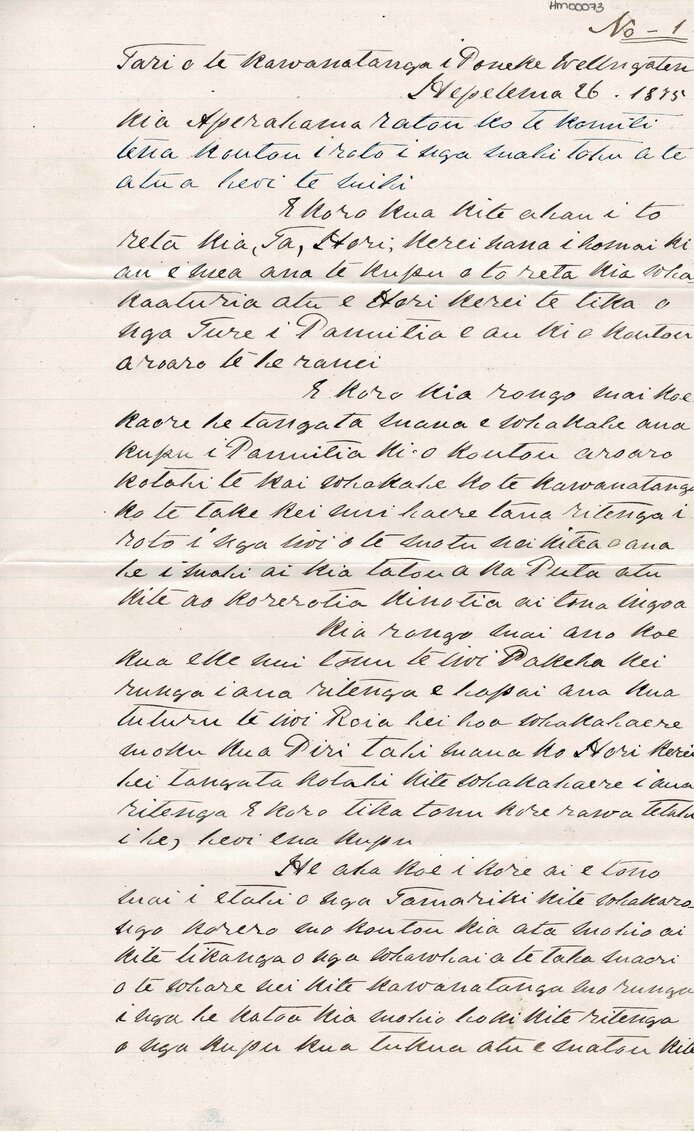 HM00073
No - 1
Tari o te Kawanatanga i Poneke Wellngaten
Hepetema 26. 1875
Kia Aperahama ratou ko te Komiti
tena koutou i roto i nga mahi tohu a te
atua heoi te mihi
E Koro kua kite ahau i to
reta kia, Ta, Hori, Kerei nana i homai ki
au e mea ana te kupu o to reta kia wha
kaaturia atu e Hori Kerei te tika o
nga Ture i Panuitia e au ki o koutou
aroaro te he ranei
E Koro kia rongo mai koe
kaore he tangata mana e whakahe ana
kupu i Panuitia ki o koutou aroaro
kotahi te kai whakahe ko te Kawanatanga
ko te take kei muri haere tana ritenga i
roto i nga iwi o te motu nei kitea ana
he i mahi ai kia tatou a ka Puta atu
kite ao korerotia kinotia ai tona ingoa
Kia rongo mai ano koe
kua eke nui tonu te iwi Pakeha kei
runga i ana ritenga e hapai ana kua
tuturu te iwi Roia hei hoa whakahaere
moku kua Piri tahi mana ko Hori Kerei
hei tangata kotahi kite whakahaere i ana
ritenga E Koro tika tonu kore rawa tetahi
i he, heoi ena kupu
He aha koe i kore ai e tono
mai i etahi o nga Tamariki kite whakaro
ngo korero mo koutou kia ata mohio ai
kite tikanga o nga whawhai a te taha maori
o te whare nei kite Kawanatanga mo runga
i nga he katoa kia mohio hoki kite ritenga
o nga kupu kua tukua atu e matou kite